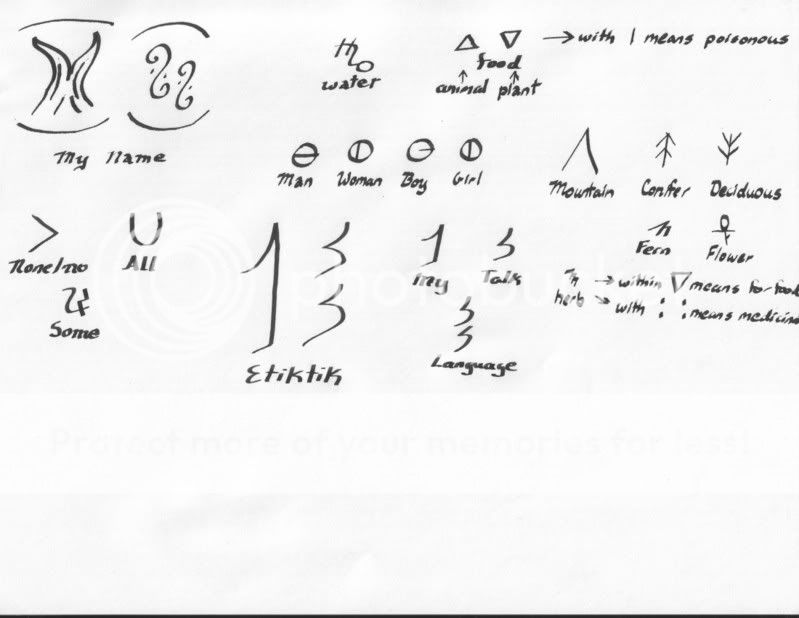 → with | means poisonous
food
water
animal plant
My Name
Man Woman Boy Girl
Mountain Conifer Deciduous
None/no
All
my Talk
Fern Flower
herb → within ▽ means for food
→ with : : means medicine
Some
Language
Etiktik
photobucket
Protect more of your memories for less!